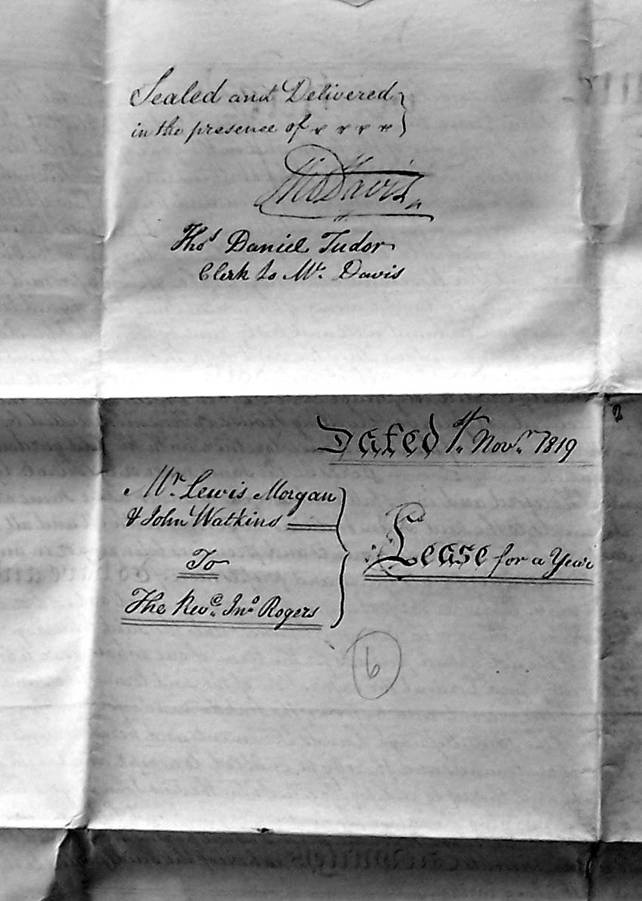 Sealed and Delivered
in the presence of
Thos Davis
Thos Daniel Tudor
Clerk to Mr. Davis
Dated 1st. Novr. 1819
Mr Lewis Morgan
& John Watkins
To
The Revd. Jno Rogers
Lease for a Year
6